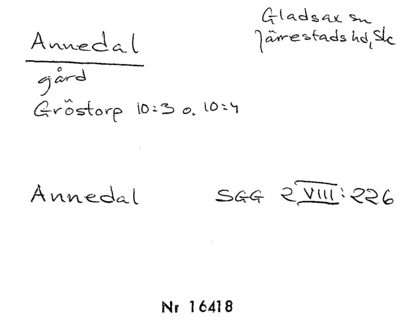 Annedal
Gladsax sn
Järrestads hd, Sk
gård
Gröstorp 10:3 o. 10:4
Annedal SGG 2 VIII: 226
Nr 16418